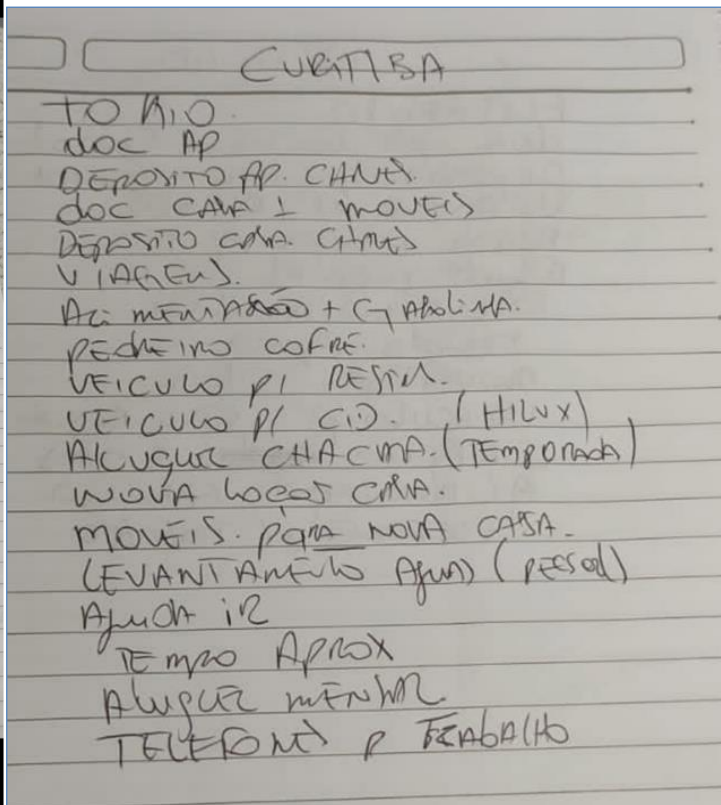 CURITIBA
TO RIO.
doc AP
DEPOSITO AP. CHAVES.
doc CASA 1 MOVEIS
DEPOSITO CASA. CHAVES
VIAGENS.
ALIMENTAÇÃO + GASOLINA.
PEDREIRO COFRE.
VEICULO P/
VEICULO P/ CID. (HILUX)
ALUGUEL CHACARA. (TEMPORADA)
NOVA CASA.
MOVEIS. PARA NOVA CASA.
LEVANTAMENTO (PESSOAL)
AJUDA
TEMPO APROX
ALUGUEL MENSAL
TELEFONES P TRABALHO